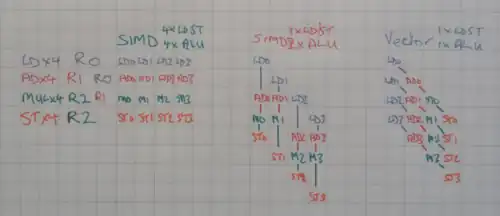 SIMD 4x LDST 4x ALU
LDx4 R0 LD0 LD1 LD2 LD3
ADx4 R1 R0 AD0 AD1 AD2 AD3
MULx4 R2 R1 M0 M1 M2 M3
STx4 R2 ST0 ST1 ST2 ST3
SIMD 1x LDST 2x ALU
LD0
LD1
AD0 AD1 LD2
M0 M1 LD3
ST0 AD2 AD3
ST1 M2 M3
ST2
ST3
Vector 1x LDST 1x ALU
LD0
LD1 AD0
LD2 AD1 M0
LD3 AD2 M1 ST0
AD3 M2 ST1
M3 ST2
ST3